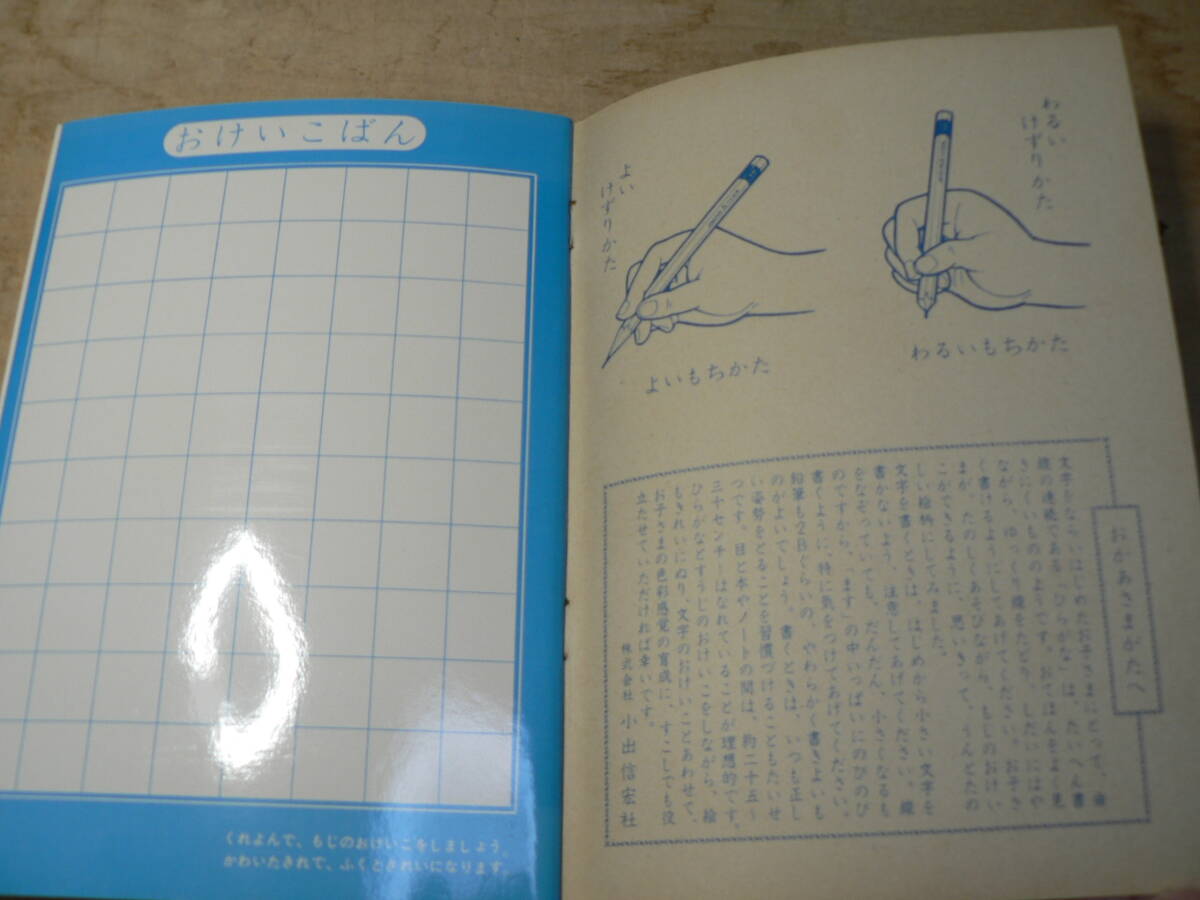 おけいこばん
くれよんで、もじのおけいこをしましょう。
かわいたきれで、ふくときれいになります。
よい
けずりかた
よいもちかた
わるい
けずりかた
わるいもちかた
おかあさまがたへ
文字をならいはじめたお子さまにとって、曲
線の連続である「ひらがな」は、たいへん書
きにくいもののようです。おてほんをよく見
ながら、ゆっくり線をたどり、しだいにはや
く書けるようにしてあげてください。お子さ
まが、たのしくあそびながら、もじのおけい
こができるように、思いきって、うんとたの
しい絵柄にしてみました。
文字を書くときは、はじめから小さい文字を
書かないよう、注意してあげてください。線
をなぞっていても、だんだん、小さくなるも
のですから、「ます」の中いっぱいにのびのび
書くように、特に気をつけてあげてください。
鉛筆も2Bぐらいの、やわらかく書きよいも
のがよいでしょう。書くときは、いつも正し
い姿勢をとることを習慣づけることもたいせ
つです。目と本やノートの間は、約二十五〜
三十センチはなれていることが理想的です。
ひらがなとすうじのおけいこをしながら、絵
もきれいにぬり、文字のおけいことあわせて、
お子さまの色彩感覚の育成に、すこしでも役
立たせていただければ幸いです。
株式会社 小出信宏社